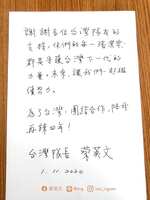 謝謝每位台灣隊友的
支持，你們的每一張選票，
都是守護台灣下一代的
力量。未來，讓我們一起繼
續努力。
為了台灣，團結合作，陪我
再拚四年！
台灣隊長 蔡英文
1. 11. 2020
蔡英文
iing
tsai_ingwen